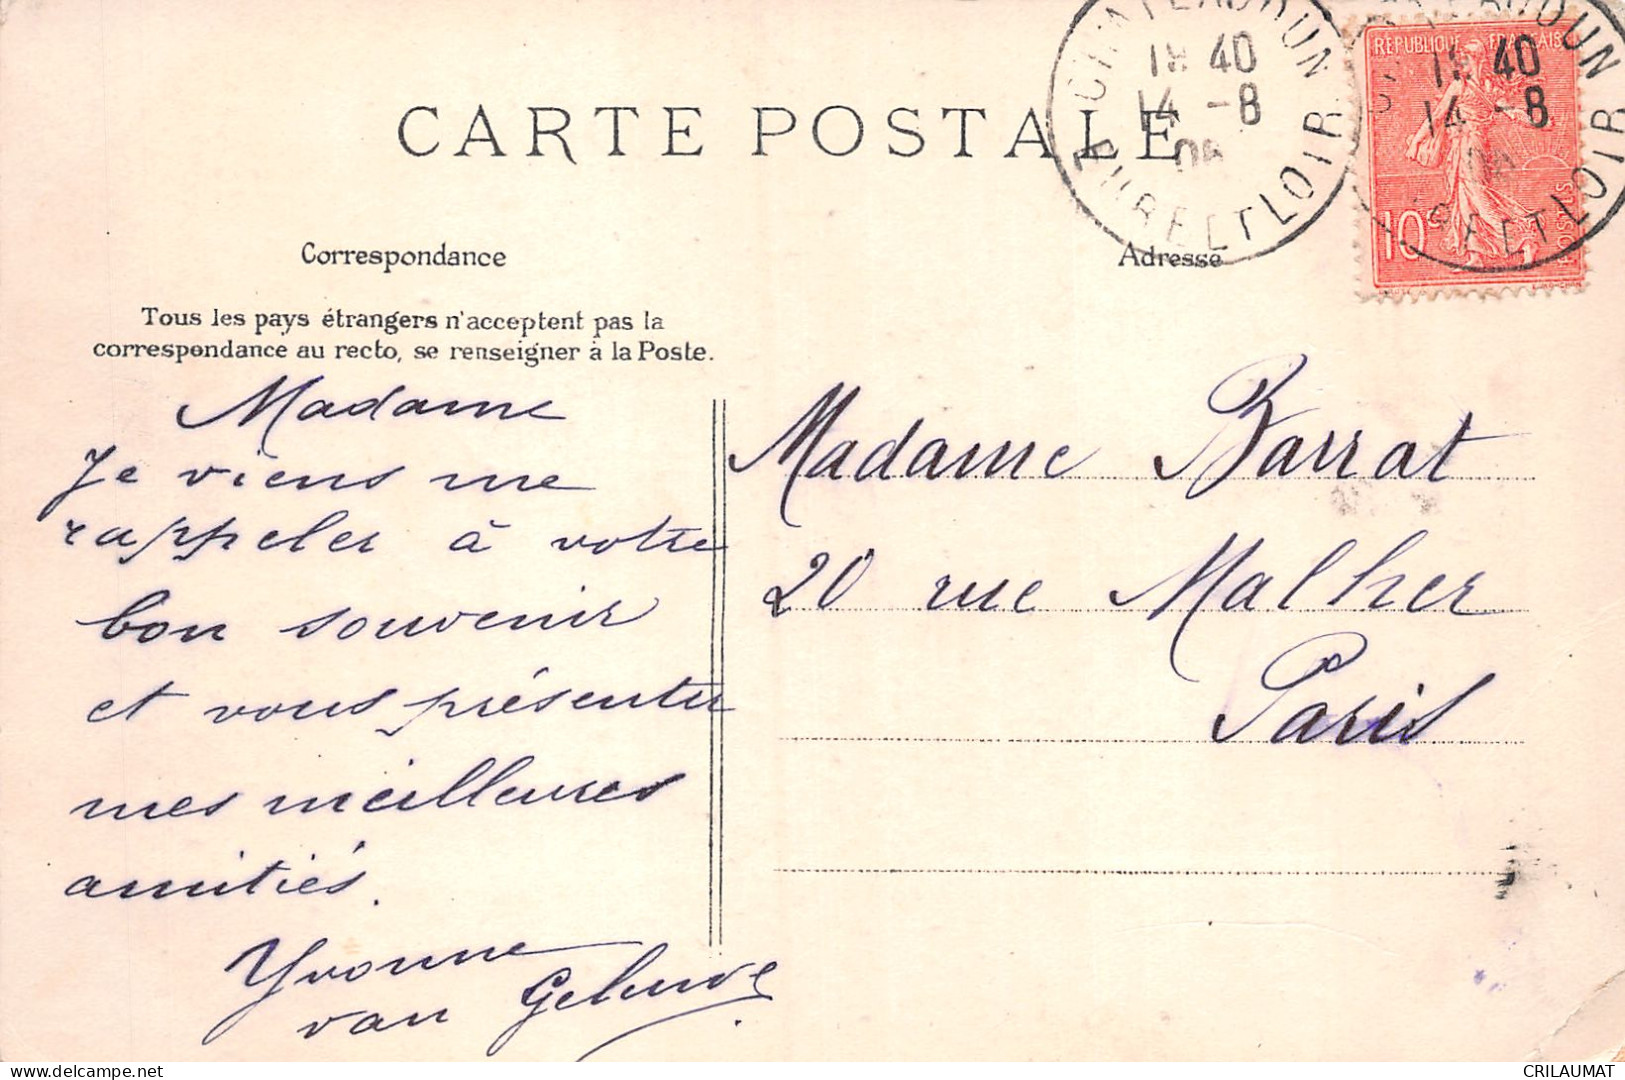 CARTE POSTALE
CHATEAUDUN
18 40
14 -8
06
EURE ET LOIR
REPUBLIQUE FRANÇAISE
10c
POSTES
18 40
14 -8
06
Correspondance
Adresse
Tous les pays étrangers n'acceptent pas la
correspondance au recto, se renseigner à la Poste.
Madame
Je viens me
rappeler à votre
bon souvenir
et vous présenter
mes meilleures
amitiés.
Yvonne
van
Madame Barrat
20 rue Malher
Paris
delcampe.net
CRILAUMAT